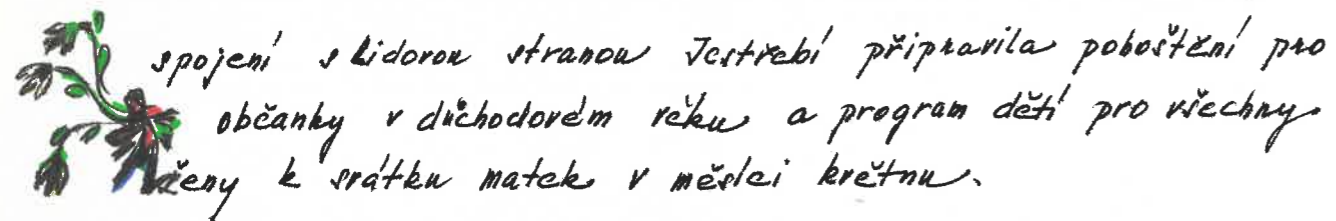 spojení s lidovou stranou Jestřebí připravila pohoštění pro
občanky v důchodovém věku a program dětí pro všechny
ženy k svátku matek v měsíci květnu.